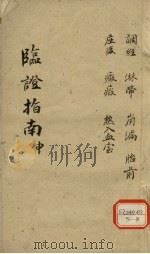 調經 淋帶 崩漏 胎前
産後 癥瘕 熱入血室
臨證指南